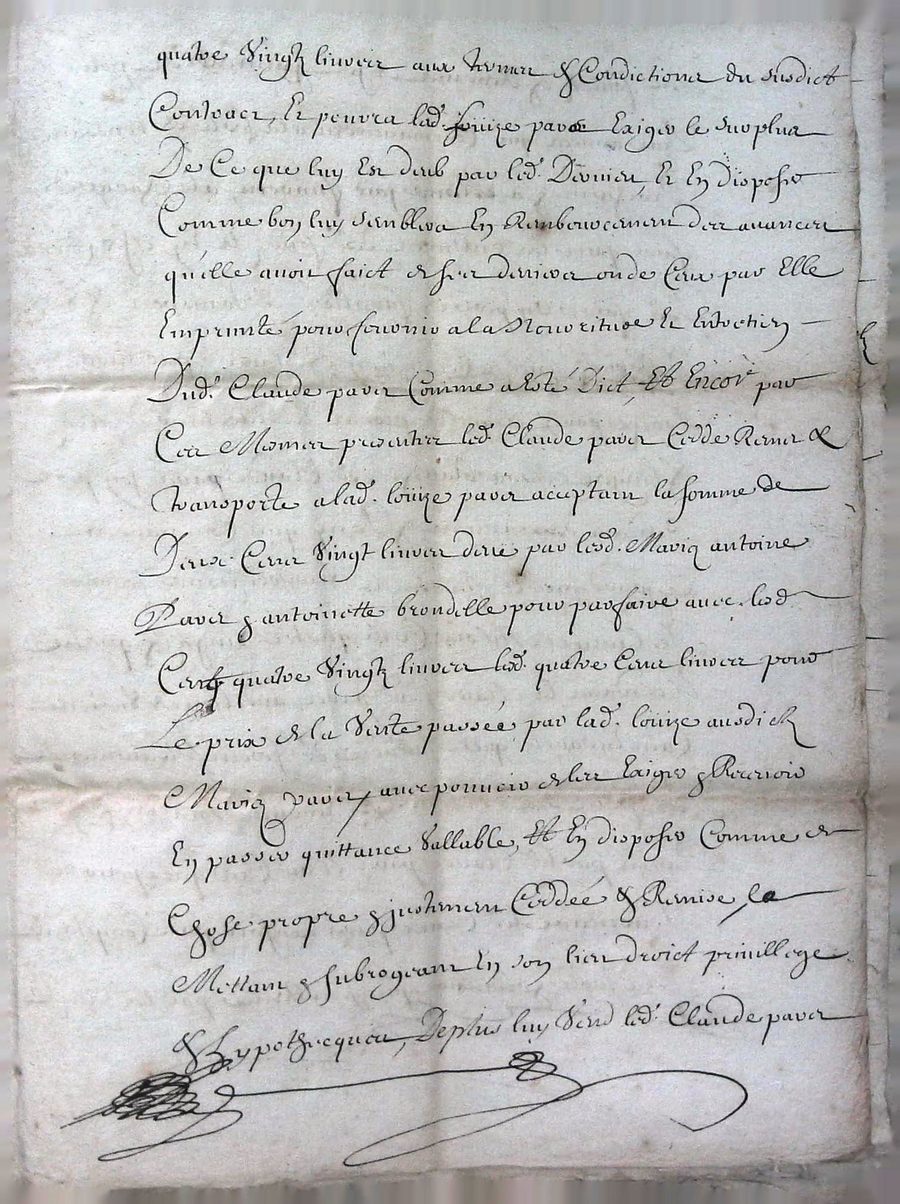 quatre Vingtz livvres aux termes & Condictions du susdict
Contract, Et pourra lad. Loüize paves Exiger le surplus
De Ce que luy Est deub par led. Dernier, Et En disposer
Comme bon luy semblera En Renboursement des avances
qu'elle avoit faict de ses deniers ou de Ceux par Elle
Emprunté pour fournir a la Nourriture Et Entretien
Dud. Claude paves Comme a Esté Dict, Et Encor par
Ces Mesmes presentes led. Claude paves Cedde Remet &
transporte a lad. loüize paves acceptant la somme de
Deux Cens Vingt livvres deüe par lesd. Mariq antoine
Paves & antoinette brondelle pour parfaire avec lesd
Cent quatre Vingtz livvres lesd. quatre Cens livvres pour
Le prix de la Vente passée par lad. loüize ausdictz
Mariez paves, avec pouvoir de les Exiger & Recevoir
En passer quittance Vallable, Et En disposer Comme de
Chose propre & justement Ceddée & Remise, la
Mettant & subrogeant En son lieu droict privillege
& hypothecques, De plus luy Vend led. Claude paves